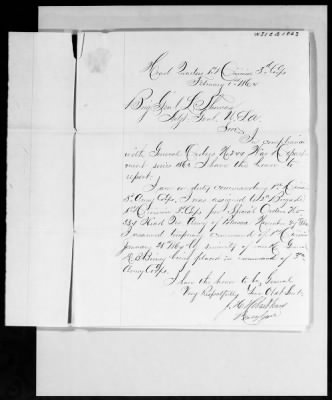 Head Quarters 1st Division 3rd Corps
February 1st 1864
Brig Genl L. Thomas
Adjt Genl. U.S.A.
Sir:
In compliance
with General Orders No 244 War Department
series 1863 I have the honor to
report.
I am on duty commanding 1st Division
3d Army Corps. I was assigned to 2d Brigade
1st Division 3d Corps per Special Orders No
Head Qrs Army of Potomac November
I assumed temporary command of 1st Division
January 28th 1864 by seniority
Genl D. B. Birney being placed in command of 3rd
Army Corps.
I have the honor to be, General,
Very Respectfully Your Obdt Servt.
J. H. Hobart Ward
Brig Genl